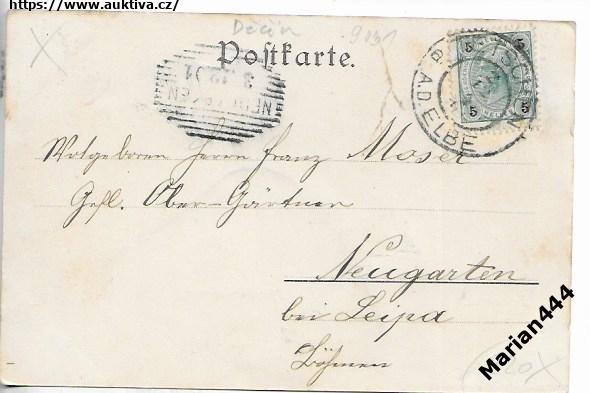 https://www.auktiva.cz/
Děčín
9031
Postkarte.
5 5
5 5
TETSCHEN
A.D. ELBE
3.12.01
Wolgeboren Herrn Franz Moser
Gräfl. Ober-Gärtner
Neugarten
bei Leipa
Böhmen
Marian444
20